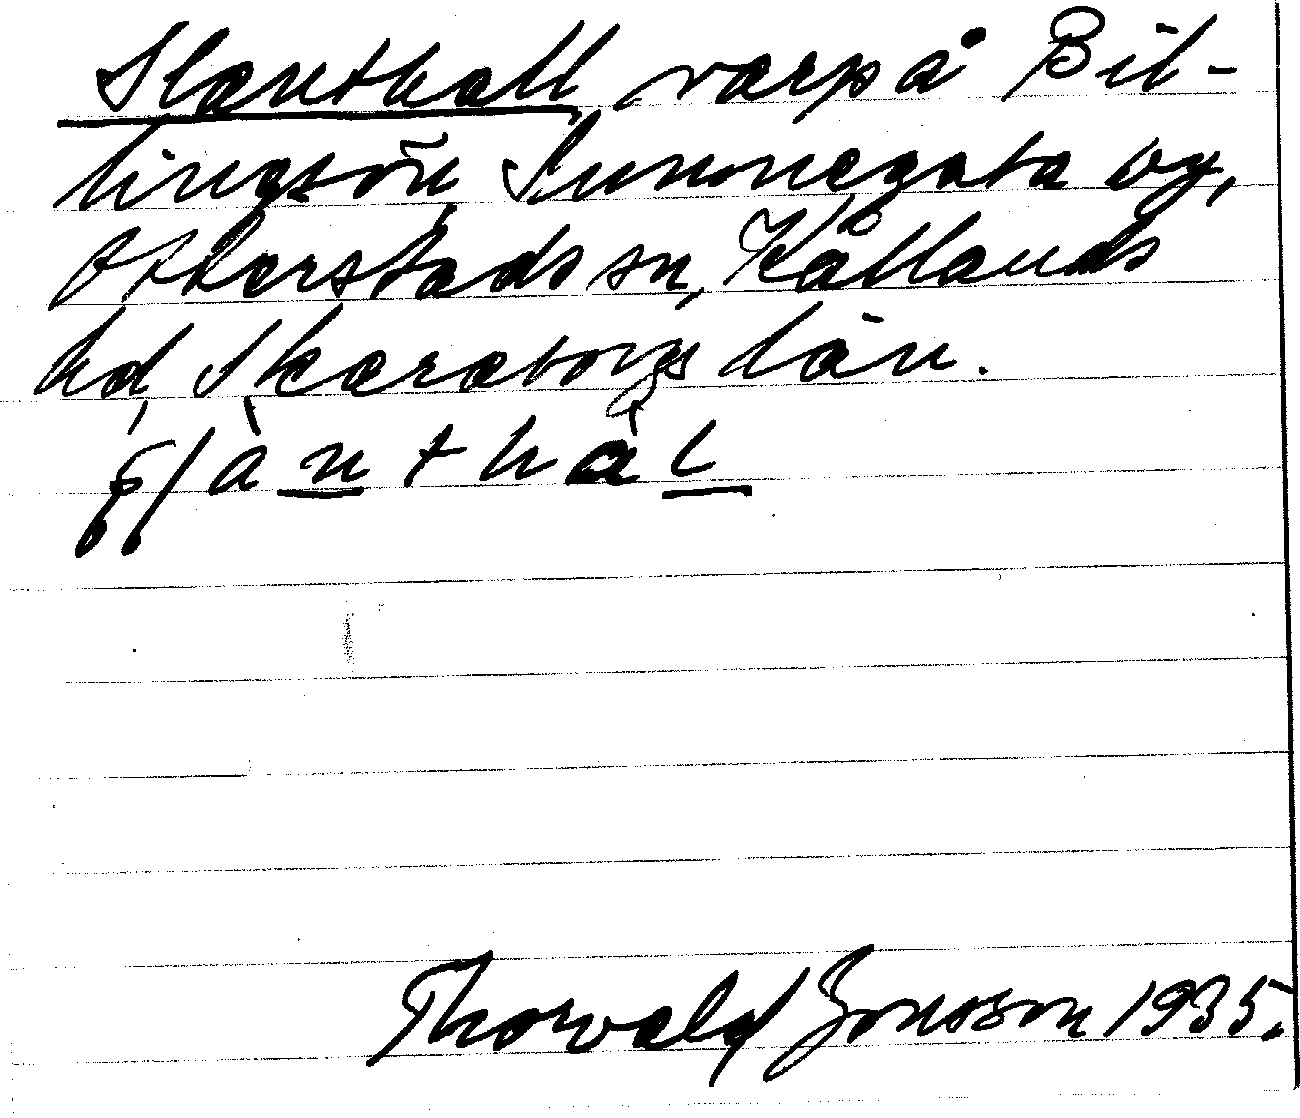 Slanthall varp å Bil-
lingsön Sunnegata by,
Otterstads sn, Kållands
hd Skaraborgs län.
Thorvald Jonsson 1935.